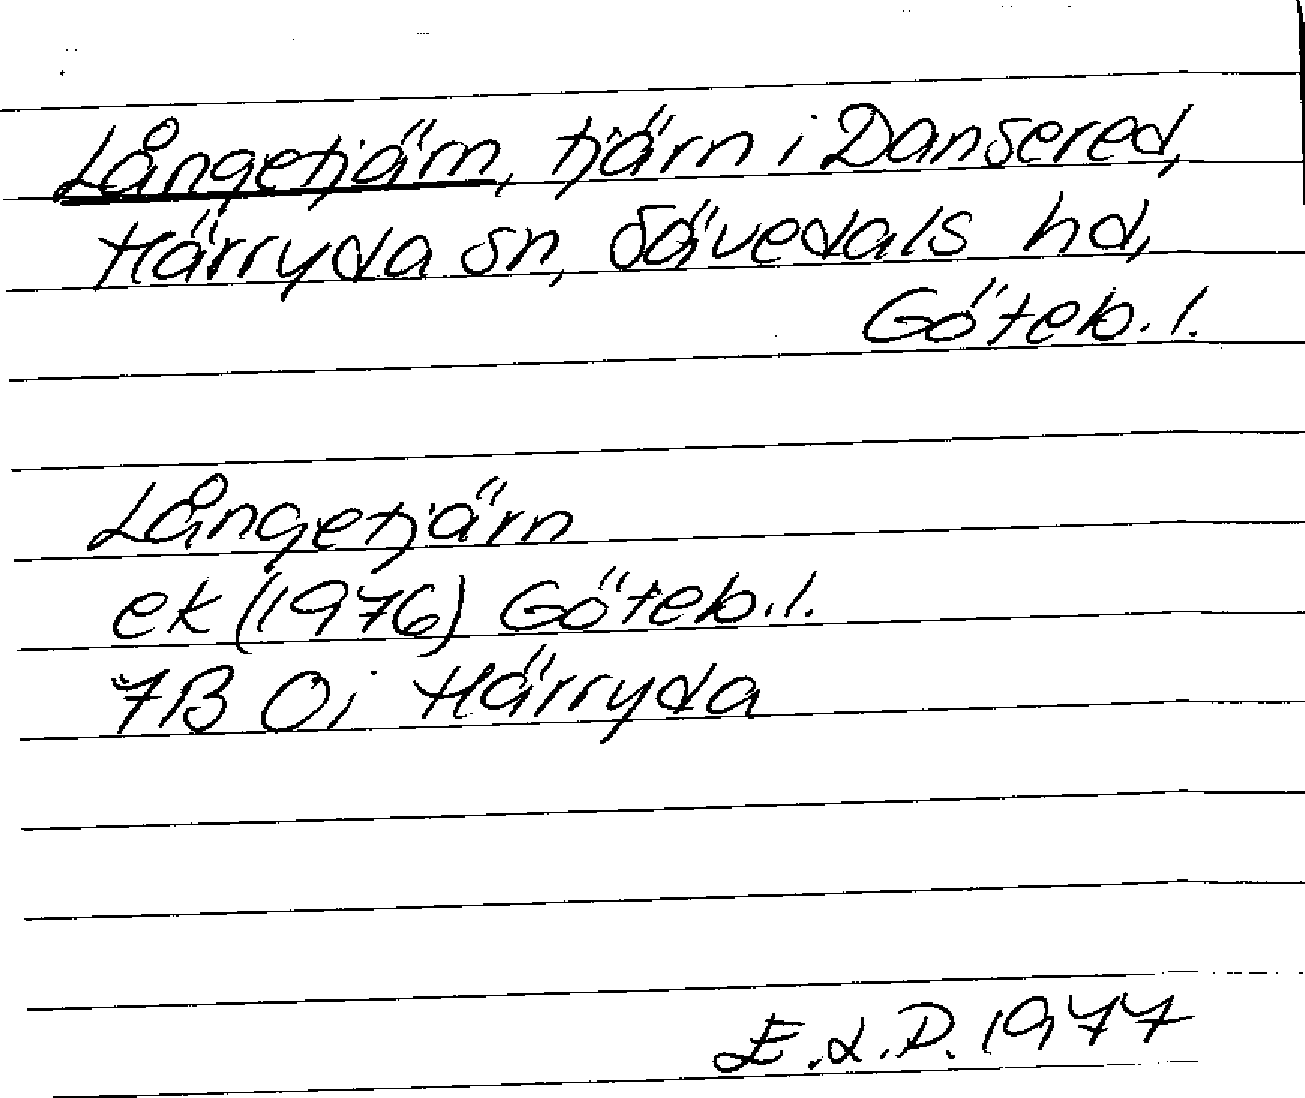 Långetjärn, tjärn i Dansered,
Härryda sn, Sävedals hd,
Göteb. l.
Långetjärn
ek (1976) Göteb. l.
7B 0i Härryda
E.L.D. 1977